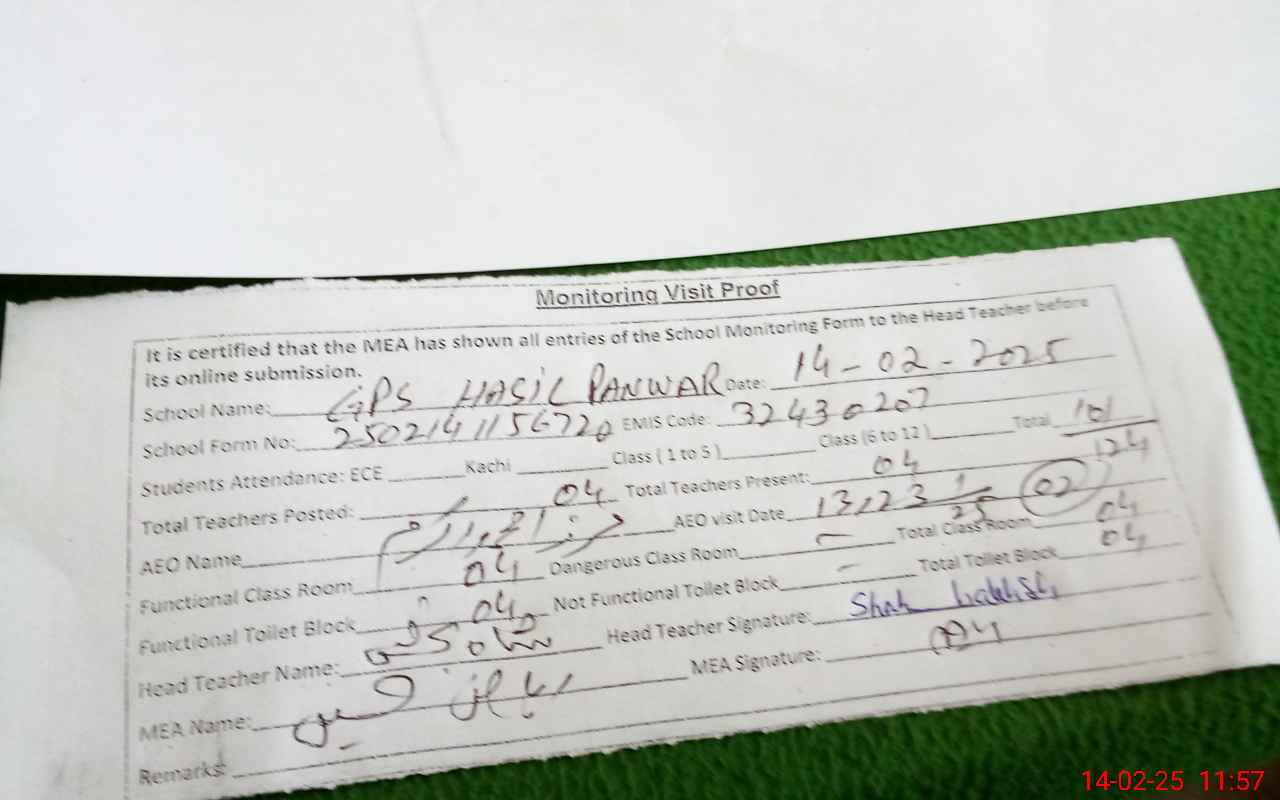 Monitoring Visit Proof
It is certified that the MEA has shown all entries of the School Monitoring Form to the Head Teacher before
its online submission.
School Name: GPS HASIL PANWAR Date: 14-02-2025
School Form No: EMIS Code: 32430207
Students Attendance: ECE Kachi Class ( 1 to 5 ) Class (6 to 12 ) Total 101
124
Total Teachers Posted: 04 Total Teachers Present: 04
AEO Name AEO visit Date 13,23 1/25 02
Functional Class Room 04 Dangerous Class Room - Total Class Room 04
Functional Toilet Block 04 Not Functional Toilet Block - Total Toilet Block 04
Head Teacher Name: Head Teacher Signature: Shah
MEA Name: MEA Signature:
Remarks:
14-02-25 11:57